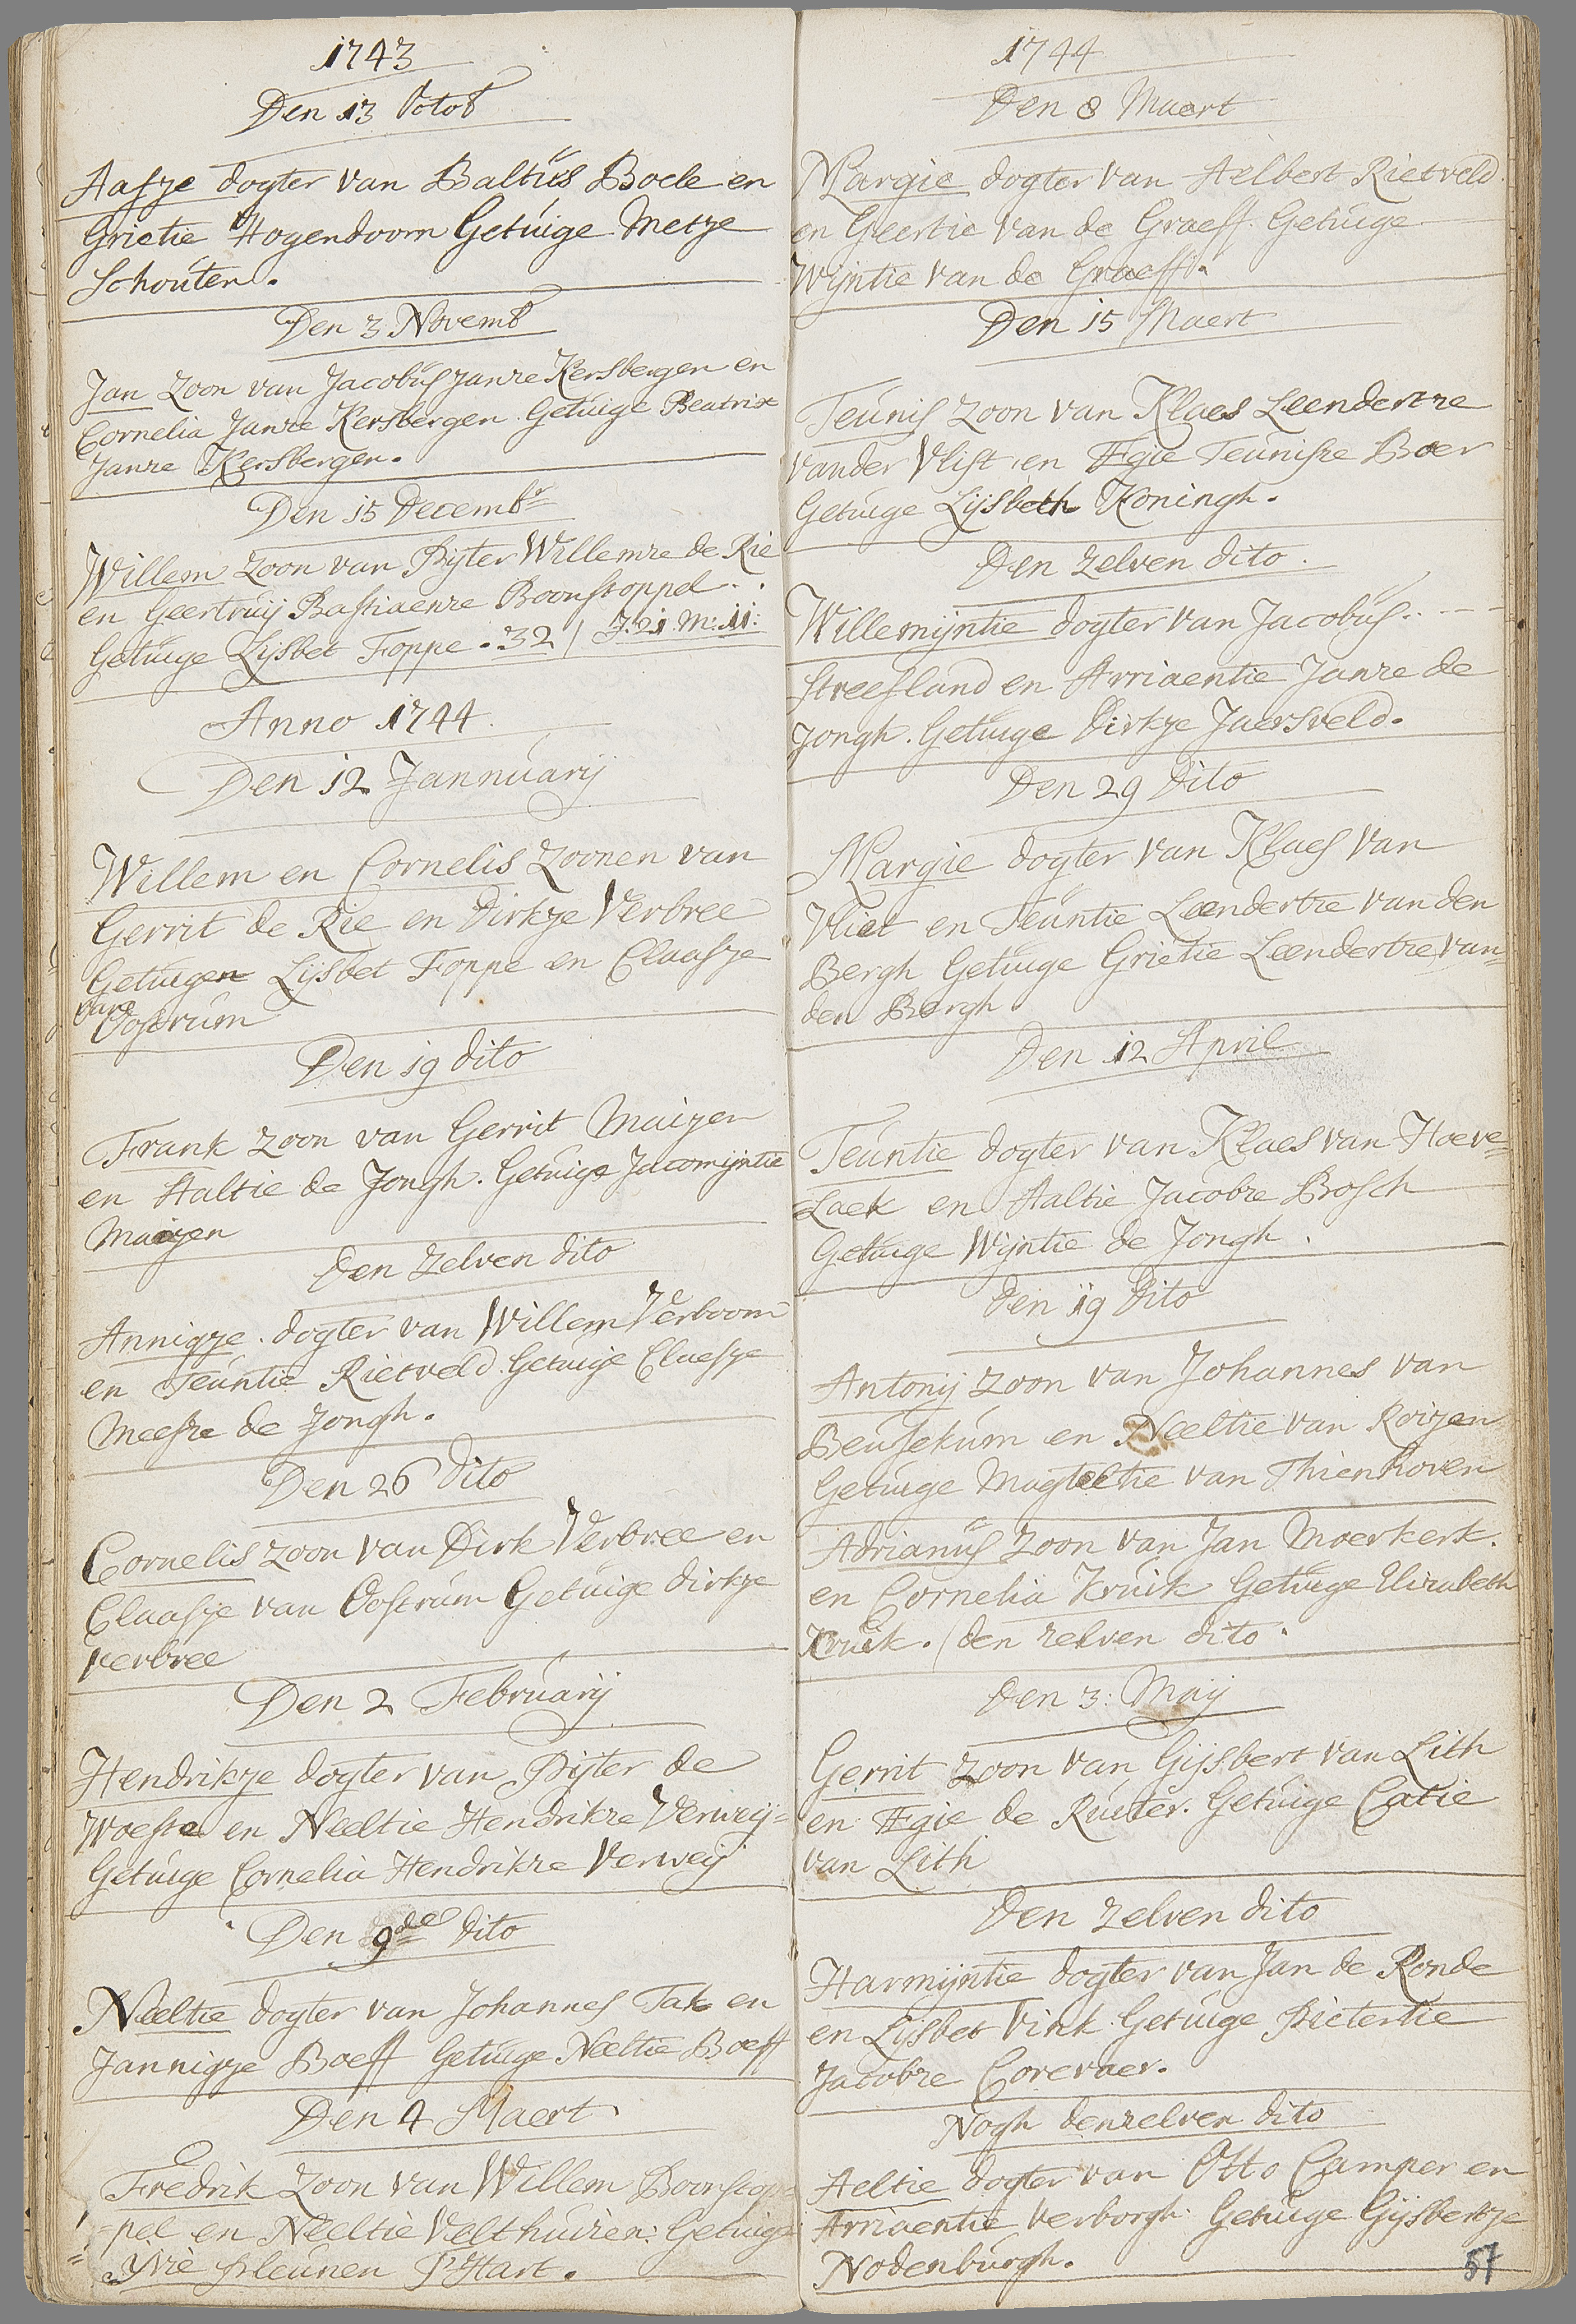 1743
Den 13 Octob
Aafze dogter van Baltus Boele en
Grietie Hogendoorn Getuige Metze
Schouten.
Den 3 Novemb
Jan zoon van Jacobus Janze Kersbergen en
Cornelia Janze Kersbergen. Getuige Beatrix
Janze Kersbergen.
Den 15 Decembr
Willem zoon van Pijter Willemze de Rie
en Geertruij Bastiaenze Boonstoppel
Getuige Lijsbet Foppe. 32 / J. 21. M: 11:
Anno 1744.
Den 12 Jannuarij
Willem en Cornelis zoonen van
Gerrit de Rie en Dirkze Verbree
Getuigen Lijsbet Foppe en Claasze
van
Oostrum
Den 19 dito
Frank zoon van Gerrit Maizen
en Aaltie de Jongh. Getuige Jacomijntie
Maizen
Den zelven dito
Annigze. dogter van Willem Verboom
en Teuntie Rietveld. Getuige Claesze
Meesze de Jongh.
Den 26 dito
Cornelis zoon van Dirk Verbree en
Claasze van Oostrum Getuige Dirkze
Verbree
Den 2 Februarij
Hendrikze dogter van Pijter de
Woeste en Neeltie Hendrikze Verweij=
Getuige Cornelia Hendrikze Verweij
Den 9de dito
Neeltie dogter van Johannes Tak en
Jannigze Boeff Getuige Neeltie Boeff
Den 4 Maert
Fredrik zoon van Willem Boonstop=
pel en Neeltie Velthuizen: Getuige
Hart.
1744
Den 8 Maert
Margie dogter van Aelbert Rietveld.
en Geertie van de Graeff. Getuige
Wijntie van de Graeff.
Den 15 Maert
Teunis zoon van Klaes Leendertze
vander Vlist, en Egie Teunisze Boer
Getuige Lijsbeth Koningh.
Den zelven dito.
Willemijntie dogter van Jacobus.. ---
streefland en Arriaentie Janze de
Jongh. Getuige Dirkze Jaersveld.
Den 29 dito
Margie dogter van Klaes van
Vliet en Teuntie Leendertze van den
Bergh Getuige Grietie Leendertze van=
den Bergh
Den 12 April
Teuntie dogter van Klaes van Hoeve=
Laek en Aaltie Jacobze Bosch
Getuige Wijntie de Jongh.
Den 19 dito
Antonij zoon van Johannes van
Beusekum en Neeltie van Roizen
Getuige Magteltie van Thienhoven
Adrianus zoon van Jan Moerkerk.
en Cornelia Kruik Getuige Elizabeth
Kruik. / den zelven dito.
Den 3: Maij
Gerrit zoon van Gijsbert van Lith
en Egie de Ruiter. Getuige Catie
van Lith
Den zelven dito
Harmijntie dogter van Jan de Ronde
en Lijsbet Vink Getuige Pietertie
Jacobze Corevaer.
Nogh denzelven dito
Aeltie dogter van Otto Camper en
Arriaentie Verborgh Getuige Gijsbertze
Nodenburgh.
57